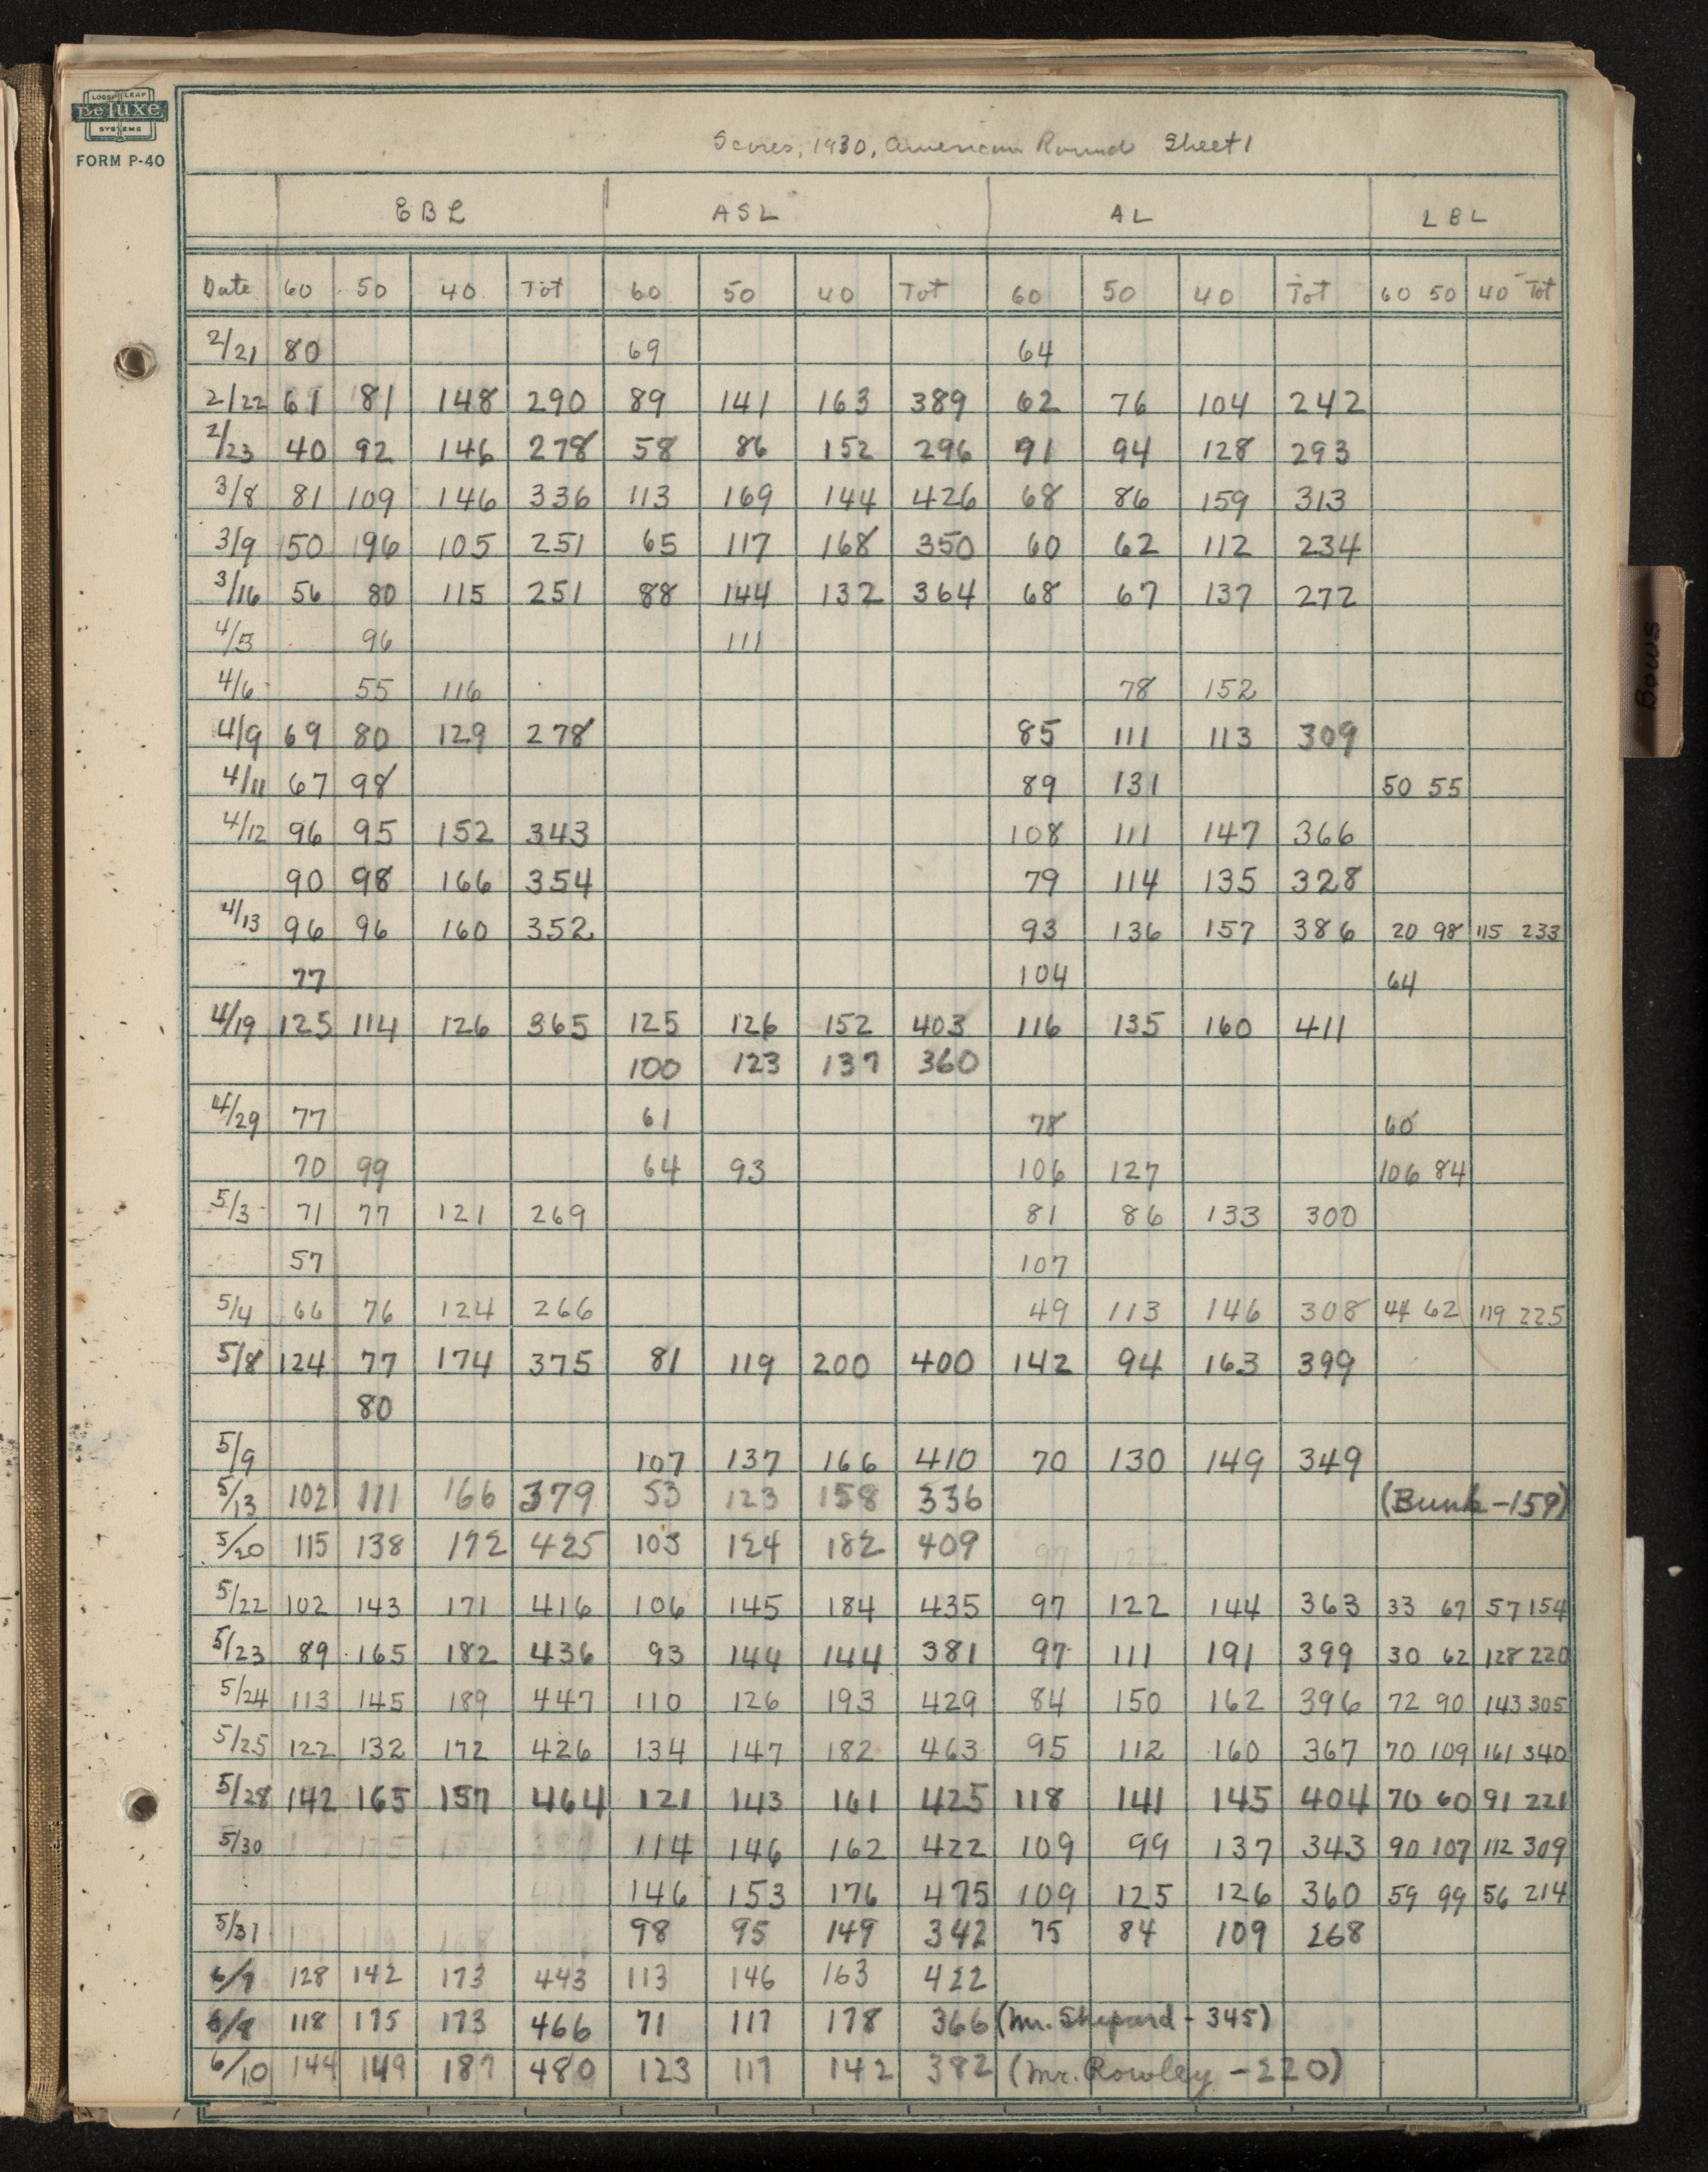 LOOSE LEAF
DeLuxe
SYSTEMS
FORM P-40
Scores, 1930, American Round Sheet 1
EBL ASL AL LBL
Date 60 50 40 Tot 60 50 40 Tot 60 50 40 Tot 60 50 40 Tot
2/21 80 69 64
2/22 61 81 148 290 89 141 163 389 62 76 104 242
2/23 40 92 146 278 58 86 152 296 91 94 128 293
3/8 81 109 146 336 113 169 144 426 68 86 159 313
3/9 50 96 105 251 65 117 168 350 60 62 112 234
3/16 56 80 115 251 88 144 132 364 68 67 137 272
4/5 96 111
4/6 55 116 78 152
4/9 69 80 129 278 85 111 113 309
4/11 67 98 89 131 50 55
4/12 96 95 152 343 108 111 147 366
90 98 166 354 79 114 135 328
4/13 96 96 160 352 93 136 157 386 20 98 115 233
77 104 64
4/19 125 114 126 365 125 126 152 403 116 135 160 411
100 123 137 360
4/29 77 61 78 60
70 99 64 93 106 127 106 84
5/3 71 77 121 269 81 86 133 300
57 107
5/4 66 76 124 266 49 113 146 308 44 62 119 225
5/8 124 77 174 375 81 119 200 400 142 94 163 399
80
5/9 107 137 166 410 70 130 149 349
5/13 102 111 166 379 53 123 158 336 (Bunk-159)
5/20 115 138 172 425 103 124 182 409 97 122
5/22 102 143 171 416 106 145 184 435 97 122 144 363 33 67 57 154
5/23 89 165 182 436 93 144 144 381 97 111 191 399 30 62 128 220
5/24 113 145 189 447 110 126 193 429 84 150 162 396 72 90 143 305
5/25 122 132 172 426 134 147 182 463 95 112 160 367 70 109 161 340
5/28 142 165 157 464 121 143 161 425 118 141 145 404 70 60 91 221
5/30 114 146 162 422 109 99 137 343 90 107 112 309
146 153 176 475 109 125 126 360 59 99 56 214
5/31 98 95 149 342 75 84 109 268
6/7 128 142 173 443 113 146 163 422
6/8 118 175 173 466 71 117 178 366 (Mr. Shepard - 345)
6/10 144 149 187 480 123 117 142 382 (Mr. Rowley - 220)
Bows